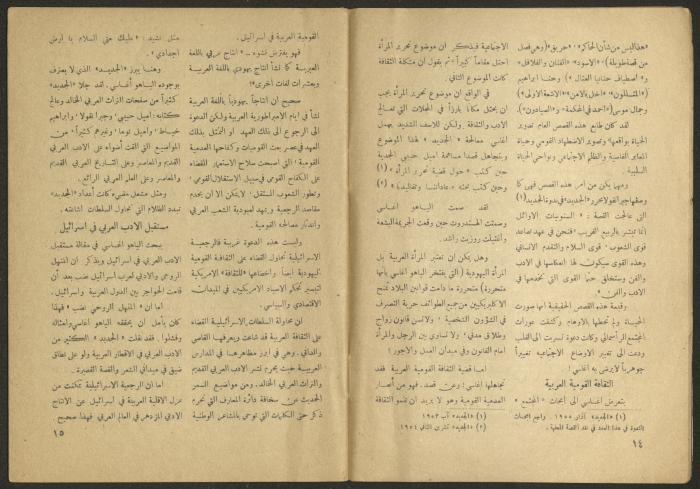 «هذا ليس من شأن الحاكم» ، «حريق» (وهي فصل
من قصة طويلة) ، «الاسود» ، «الفنان والفلافل»
و «اصطياف حنايا العتال» . وحنا ابراهيم
(«المتسللون» ، «اخل بالامن» ، «الاشعة الاولى»)
وجمال موسى («احمد في المحكمة» و «الصيادون»).
لقد كان طابع هذه القصص العام تصوير
الحياة بواقعها وتصوير الاضطهاد القومي وحياة
المعاير القاسية والظلم الاجتماعي ونواحي الحياة
السلبية .
ومهما يكن من امر هذه القصص فهي كما
وصفها جبرا نقولا محرر «الجديد» في ندوة الجديد (١)
التي عالجت القصة : « السنونيات الاوائل
انها تبشر بالربيع القريب ، فنحن في عهد تصاعد
قوى الشعوب . قوى السلام والتقدم الانساني
وهذه القوى سيكون لها انعكاسها في الادب
والفن وستخلق حتما القوى التي تخدمها في
الادب والفن »
وقيمة هذه القصص الحقيقية انها صورت
الحياة ولم تحطها بالاوهام وكشفت عورات
المجتمع الرأسمالي وكانت دعوة تسربت الى القلب
ودعت الى تغيير الاوضاع الاجتماعية تغييراً
جوهرياً لا يرضى به اغاسي !
الثقافة القومية العربية
يتعرض اغاسي الى ابحاث « المجتمع »
(١) «الجديد» آذار ١٩٥٥ . وراجع ابحاث
الندوة في هذا العدد في نقد القصة المحلية .
١٤
الاجتماعية فيذكر ان موضوع تحرير المرأة
احتل مقاماً كبيراً ثم يقول ان مشكلة الثقافة
كانت الموضوع الثاني .
في الواقع ان موضوع تحرير المرأة يجب
ان يحتل مكاناً بارزاً في المجلات التي تعالج
الادب والثقافة . ولكن للاسف الشديد يهمل
اغاسي معالجة « الجديد » لهذا الموضوع
ويتجاهل قصدا مساهمة اميل حبيبي الجدية
حين كتب «حول قضية تحرير المرأة» (١)
وحين كتب بحثه «عاداتنا وتقاليدنا» (٢)
لقد صمت الياهو اغاسي
وصمتت الهستدروت حين وقعت الجريمة البشعة
واغتيلت روزيت راشد .
وهل يمكن ان تعتبر المرأة العربية بل
المرأة اليهودية (التي يفتخر الياهو اغاسي بأنها
متحررة) متحررة ما دامت قوانين البلاد تمنح
الاكليريكيين من جميع الطوائف حرية التصرف
في الشؤون الشخصية ، ولا تسن قانون زواج
وطلاق مدني ، ولا تساوي بين الرجل والمرأة
امام القانون وفي ميدان العمل والاجور !
اما قضية الثقافة القومية العربية فقد
تجاهلها اغاسي ، وعن قصد . فهو من انصار
العدمية القومية وهو لا يريد ان تنمو الثقافة
(١) «الجديد» آب ١٩٥٤
(٢) «الجديد» تشرين الثاني ١٩٥٤
القومية العربية في اسرائيل .
فهو يفترض نشوء .. « انتاج عربي باللغة
العبرية كما نشأ انتاج يهودي باللغة العربية
وبعشرات لغات اخرى » !
صحيح ان انتاجاً يهودياً باللغة العربية
نشأ في ايام الامبراطورية العربية ولكن الدعوة
الى الرجوع الى ذلك العهد او التمثل بذلك
العهد في عصر بعث القوميات وكفاحها العديدة
القومية ، التي اصبحت سلاح الاستعمار للقضاء
على الكفاح القومي في سبيل الاستقلال القومي .
وتطور الشعوب المستقل ، لا يمكن الا ان يخدم
مقاصد الرجعية ويمهد لعبودية الشعب العربي
واندثار معالمه القومية .
وليست هذه الدعوة غريبة فالرجعية
الاسرائيلية تحاول القضاء على الثقافة القومية
اليهودية ايضاً واخضاعها «للثقافة» الامريكية
لتيسير تحكم الاسياد الامريكيين في الميدان
الاقتصادي والسياسي .
ان محاولة السلطات الاسرائيلية القضاء
على الثقافة العربية قد شاعت ويعرفها القاصي
والداني . وهي في ابرز مظاهرها في المدارس
العربية حيث يحرم نشر الادب العربي القديم
والتراث العربي الخالد . ومن مواضيع السمر
الحديث عن سخافة دائرة المعارف التي تحرم
ذكر حتى الكلمات التي توحي بالمشاعر الوطنية
مثل نشيد : «عليك مني السلام يا ارض
اجدادي » .
وهنا يبرز «الجديد» الذي لا يعترف
بوجوده الياهو اغاسي . لقد جلا «الجديد»
كثيراً من صفحات التراث العربي الخالد وعالج
كتابه : اميل حبيبي ، وجبرا نقولا ، وابراهيم
خياط ، واميل توما ، وغيرهم كثيراً من
المواضيع التي القت اضواء على الادب العربي
القديم والمعاصر وعلى التاريخ العربي القديم
والمعاصر وعلى العلم العربي الرائع .
ومثل مشعل مضيء كانت أعداد «الجديد»
تبدد الظلام التي تحاول السلطات اشاعته .
مستقبل الادب العربي في اسرائيل
يبحث الياهو اغاسي في مقاله مستقبل
الادب العربي في اسرائيل ويذكر ان المنهل
الروحي والادبي لعرب اسرائيل نضب بعد أن
قامت الحواجز بين الدول العربية واسرائيل .
اما ان « المنهل الروحي نضب » فهذا
كان يأمل أن يحققه الياهو اغاسي وامثاله
وفشلوا . فقد نقلت «الجديد» الكثير من
الادب العربي في الاقطار العربية ولو على نطاق
ضيق في ميداني الشعر والقصة القصيرة .
اما ان الرجعية الاسرائيلية تمكنت من
عزل الاقلية العربية في اسرائيل عن الانتاج
الادبي المزدهر في العالم العربي فهذا صحيح
١٥